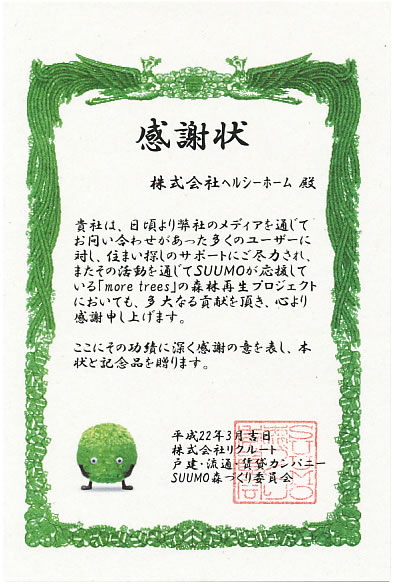 感謝状
株式会社ヘルシーホーム 殿
貴社は、日頃より弊社のメディアを通じて
お問い合わせがあった多くのユーザーに
対し、住まい探しのサポートにご尽力され、
またその活動を通じてSUUMOが応援して
いる「more trees」の森林再生プロジェクト
においても、多大なる貢献を頂き、心より
感謝申し上げます。
ここにその功績に深く感謝の意を表し、本
状と記念品を贈ります。
平成22年3月吉日
株式会社リクルート
戸建・流通・賃貸カンパニー
SUUMO森づくり委員会